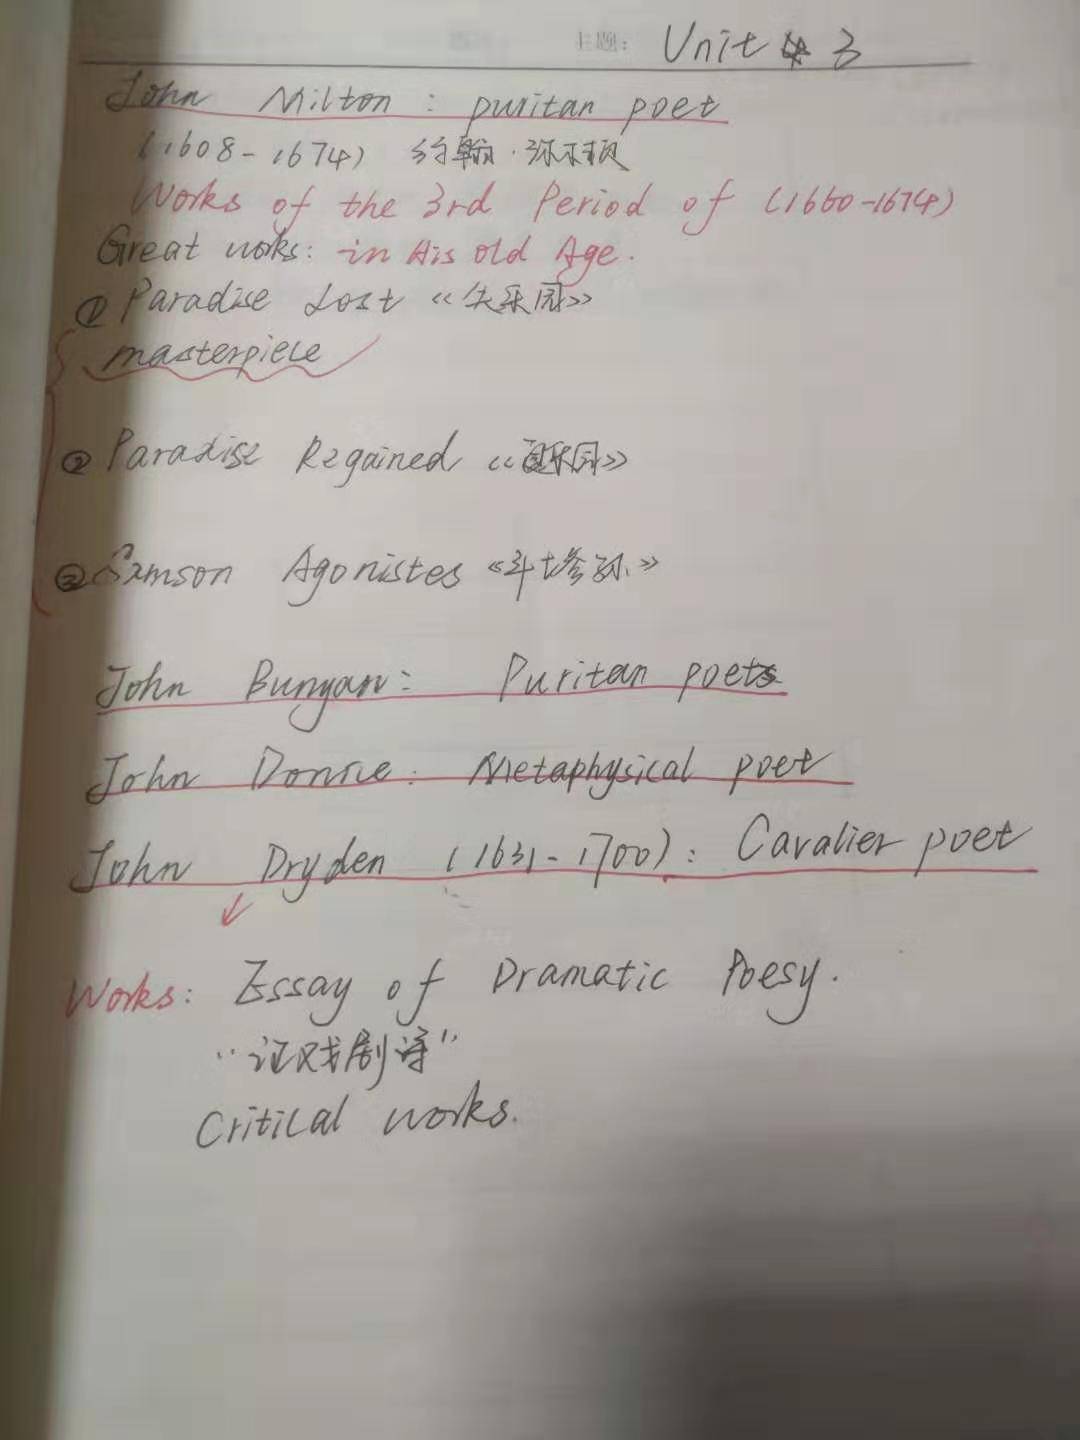 主题: Unit 3
John Milton : puritan poet
(1608-1674) 约翰·弥尔顿
Works of the 3rd Period of (1660-1674)
Great works: in His old Age.
① Paradise Lost 《失乐园》
masterpiece
② Paradise Regained 《复乐园》
③ Samson Agonistes 《斗士参孙》
John Bunyan: Puritan poets
John Donne: Metaphysical poet
John Dryden (1631-1700): Cavalier poet
Works: Essay of Dramatic Poesy.
"论戏剧诗"
Critical works.